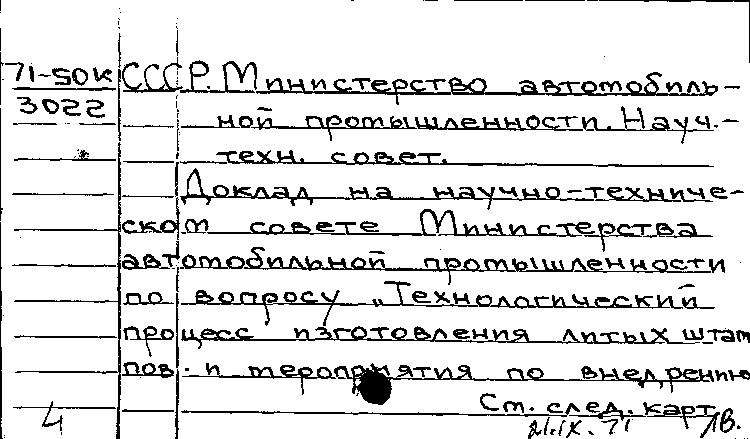 71-50к СССР. Министерство автомобиль-
3022 ной промышленности. Науч.-
техн. совет.
Доклад на научно-техниче-
ском совете Министерства
автомобильной промышленности
по вопросу „Технологический
процесс изготовления литых штам
пов и мероприятия по внедрению
См. след. карт.
4 21.IX.71 лв.